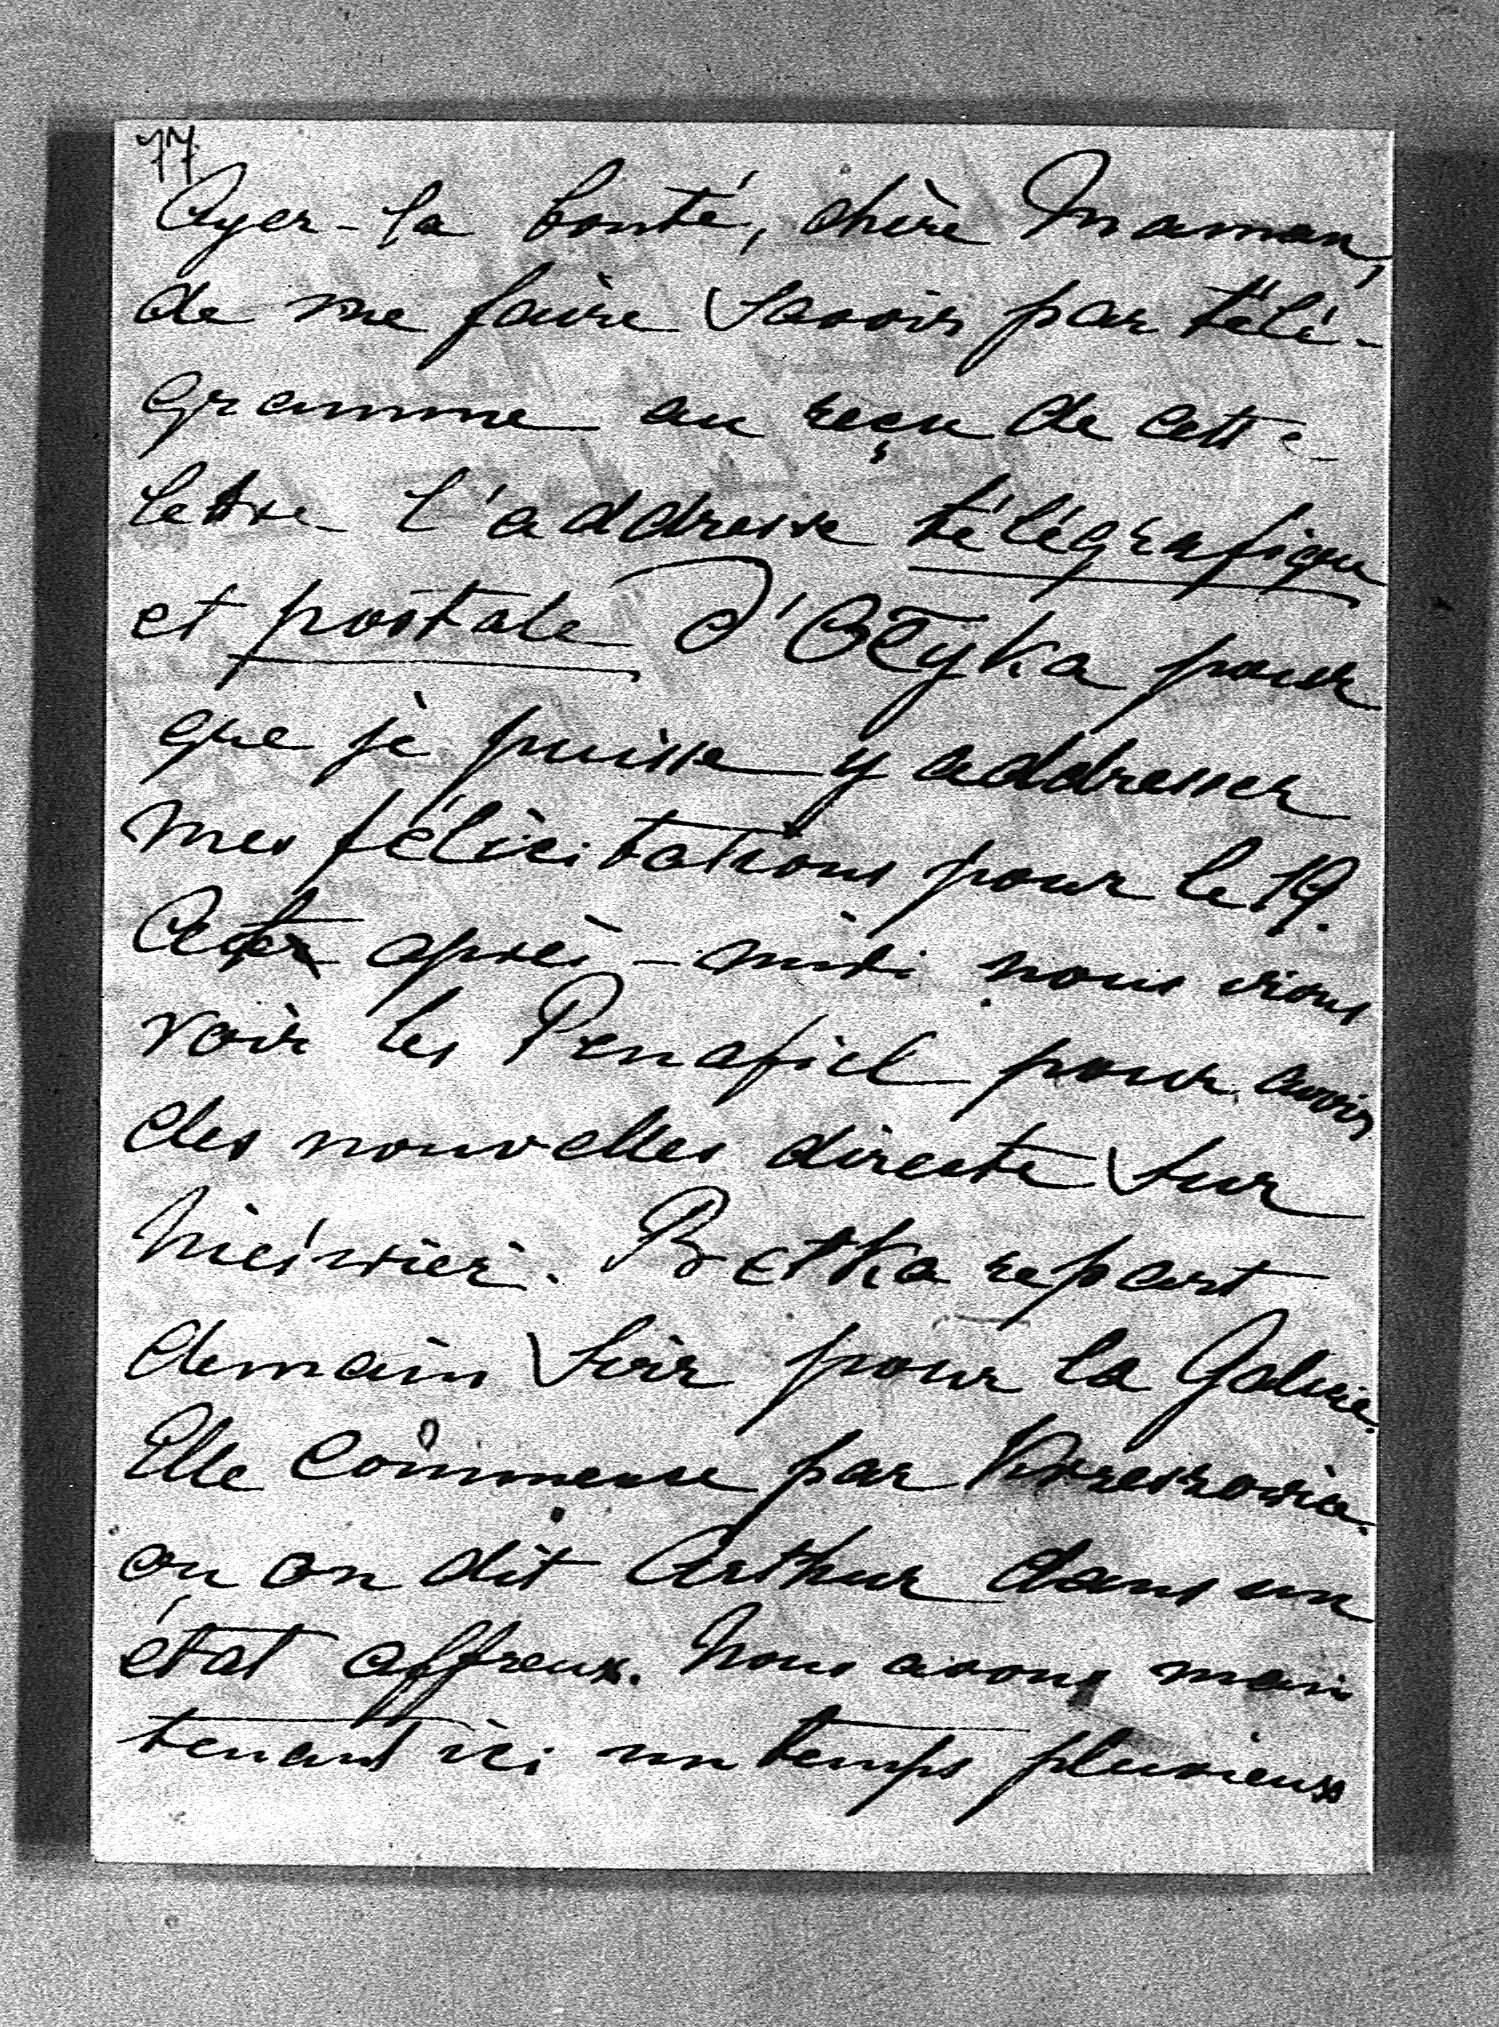 77
Ayez-la bonté, chère Maman,
de me faire savoir par télé-
gramme au reçu de cette
lettre l'addresse télégrafique
et postale d'Ołyka pour
que je puisse y addresser
mes félicitations pour le 19.
Cet après-midi nous irons
voir les Penafiel pour avoir
des nouvelles directe sur
Nieśwież. Betka repart
demain soir pour la Galicie.
Elle commence par Krzeszowice
ou on dit Arthur dans un
état affreux. Nous avons main
tenant ici un temps pluvieux